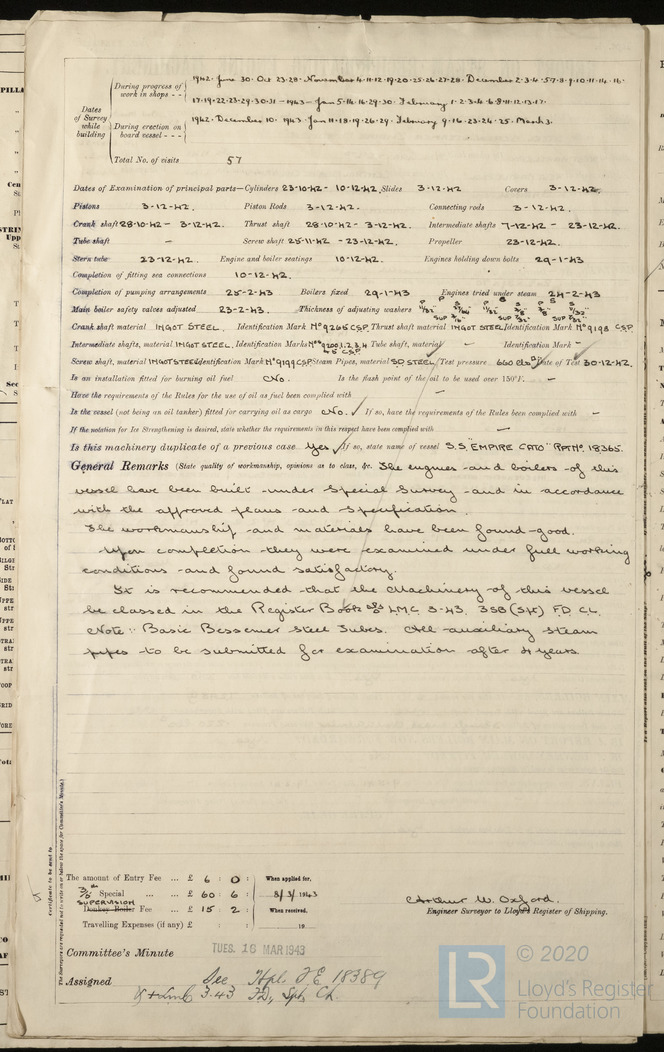 Dates of Survey while building
During progress of work in shops - - 1942. June 30. Oct 23.28. November 4.11.12.19.20.25.26.27.28. December 2.3.4.5.7.8.9.10.11.14.16.
17.19.22.23.29.30.31 - 1943 - Jan 5.14.16.29.30. February 1.2.3.4.6.8.11.12.13.17.
During erection on board vessel - - - 1942. December 10. 1943. Jan 11.18.19.26.29. February 9.16.23.24.25. March 3.
Total No. of visits 57
Dates of Examination of principal parts—Cylinders 23-10-42 - 10-12-42. Slides 3-12-42 Covers 3-12-42.
Pistons 3-12-42. Piston Rods 3-12-42. Connecting rods 3-12-42.
Crank shaft 28-10-42 - 3-12-42. Thrust shaft 28-10-42 - 3-12-42. Intermediate shafts 7-12-42 - 23-12-42.
Tube shaft - Screw shaft 25-11-42 - 23-12-42. Propeller 23-12-42.
Stern tube 23-12-42. Engine and boiler seatings 10-12-42. Engines holding down bolts 29-1-43
Completion of fitting sea connections 10-12-42.
Completion of pumping arrangements 25-2-43 Boilers fixed 29-1-43 Engines tried under steam 24-2-43
Main boiler safety valves adjusted 23-2-43. Thickness of adjusting washers
Crank shaft material INGOT STEEL. Identification Mark No 9265 C.S.P. Thrust shaft material INGOT STEEL Identification Mark No 9198 C.S.P.
Intermediate shafts, material INGOT STEEL. Identification Marks Nos 9200,1,2,3,4 & 5 C.S.P. Tube shaft, material - Identification Mark -
Screw shaft, material INGOT STEEL Identification Mark No 9199 C.S.P. Steam Pipes, material S.D. STEEL Test pressure 660 lbs Date of Test 30-12-42.
Is an installation fitted for burning oil fuel No. Is the flash point of the oil to be used over 150°F. -
Have the requirements of the Rules for the use of oil as fuel been complied with -
Is the vessel (not being an oil tanker) fitted for carrying oil as cargo No. If so, have the requirements of the Rules been complied with -
If the notation for Ice Strengthening is desired, state whether the requirements in this respect have been complied with -
Is this machinery duplicate of a previous case Yes If so, state name of vessel S.S. "EMPIRE CATO" RPT No. 18365.
General Remarks (State quality of workmanship, opinions as to class, &c. The engines and boilers of this
vessel have been built under Special Survey and in accordance
with the approved plans and specification.
The workmanship and materials have been found good.
Upon completion they were examined under full working
conditions and found satisfactory.
It is recommended that the Machinery of this vessel
be classed in the Register Book as L.M.C. 3-43. 3SB (Spt) F.D. CL.
Note: Basic Bessemer Steel Tubes. All auxiliary steam
pipes to be submitted for examination after 4 years.
Certificate to be sent to
The Surveyors are requested not to write on or below the space for Committee's Minute.
The amount of Entry Fee ... £ 6 : 0 : When applied for,
3/5th Special ... ... £ 60 : 6 : 8/3/1943
SUPERVISION Donkey Boiler Fee ... £ 15 : 2 : When received,
Travelling Expenses (if any) £ : : 19
Arthur W. Oxford.
Engineer Surveyor to Lloyd's Register of Shipping.
Committee's Minute TUES. 16 MAR 1943
Assigned See Hpl. F.E. 18389
3.43 FD, Spt. Ch.
© 2020
Lloyd's Register
Foundation
LR